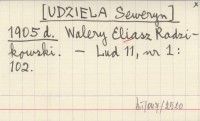 [UDZIELA Seweryn]
1905 d. Walery Eliasz Radzi-
kowski. — Lud 11, nr 1:
102.